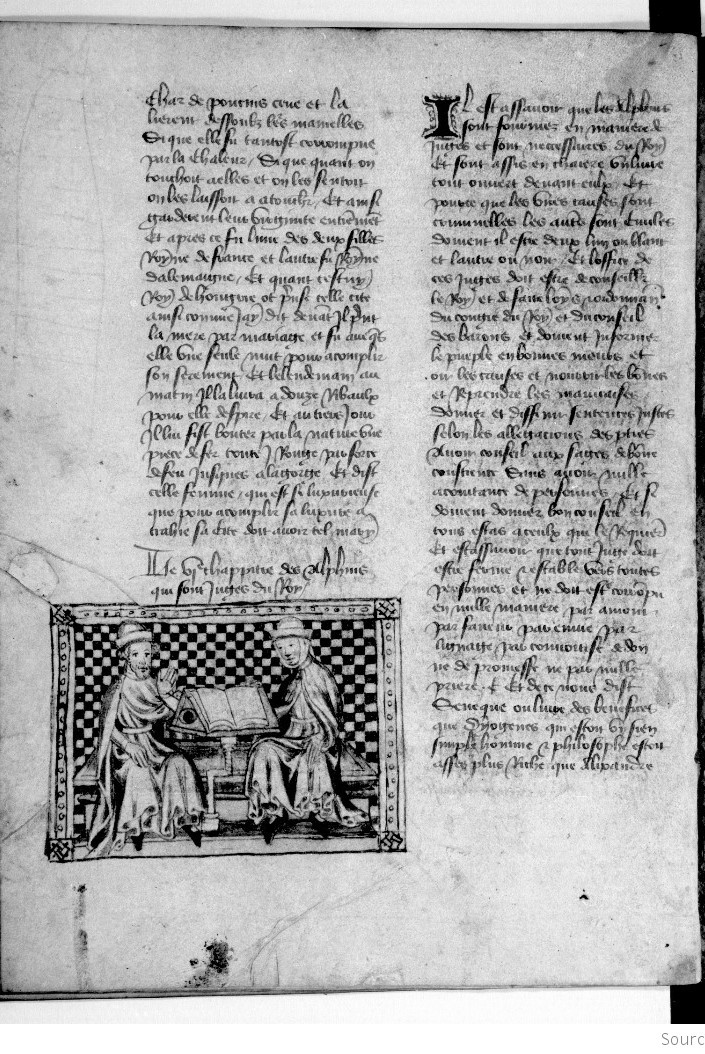 Char de poucins crue et la
lierent dessoubz les mamelles
Si que elle fu tantost corrompue
par la chaleur / Si que quant on
touchoit a elles et on les sentoit
on les laissoit a atouchr / Et ainsi
garderent leur virginite
Et apres ce fu lune des deux filles
Royne de france et lautre fu Royne
dalemaigne / Et quant cestuy
Roy de hongrie ot prise celle cite
ainsi comme jay dit devant Il print
la mere par mariage et fu avecqs
elle une seule nuit pour acomplir
son serement / Et lelendemain au
matin Il la livra a douze Ribaulx
pour elle despire / Et au tiers Jour
Il lui fist bouter par la nature une
piece de fer toute Rouge par force
de feu jusques a la gorge Et dist
celle femme / qui est si luxurieuse
que pour acomplir sa luxure a
trahie sa cite doit avoir tel mary
Le chappitre des Alphins
qui sont Juges du Roy
Il est assavoir que les Alphins
sont fourmez en maniere de
juges et sont necessaires du Roy
Et sont assis en chaiere un livre
tout ouvert devant eulx / Et
pource que les unes causes sont
criminelles les autres sont Civiles
doivent il estre deux lun ou blanc
et lautre ou noir / Et loffice de
ces juges doit estre de conseiller
le Roy / et de faire loys
du congie du Roy et du conseil
des barons et doivent Informer
le pueple en bonnes meurs et
oir les causes et nourrir les bones
et Reprendre les mauvaises
donner et diffinir sentences justes
selon les allegacions des pties
Avoir conseil aux saiges de bone
conscience Sans avoir nulle
acointance de personnes / Et si
doivent donner bon conseil en
tous estas a ceulx qui le Requiert
Et est assavoir que tout Juge doit
estre ferme & estable vers toutes
personnes et ne doit estre corropu
en nulle maniere par amour
par faveur par envie par
lignaige / par convoitise de don
ne de promesse ne par nulle
priere . Et de ce nous dist
Seneque ou livre des benefices
que Dyogenes qui estoit
simple homme & philosophe estoit
asses plus Riche que Alixandre
Sourc